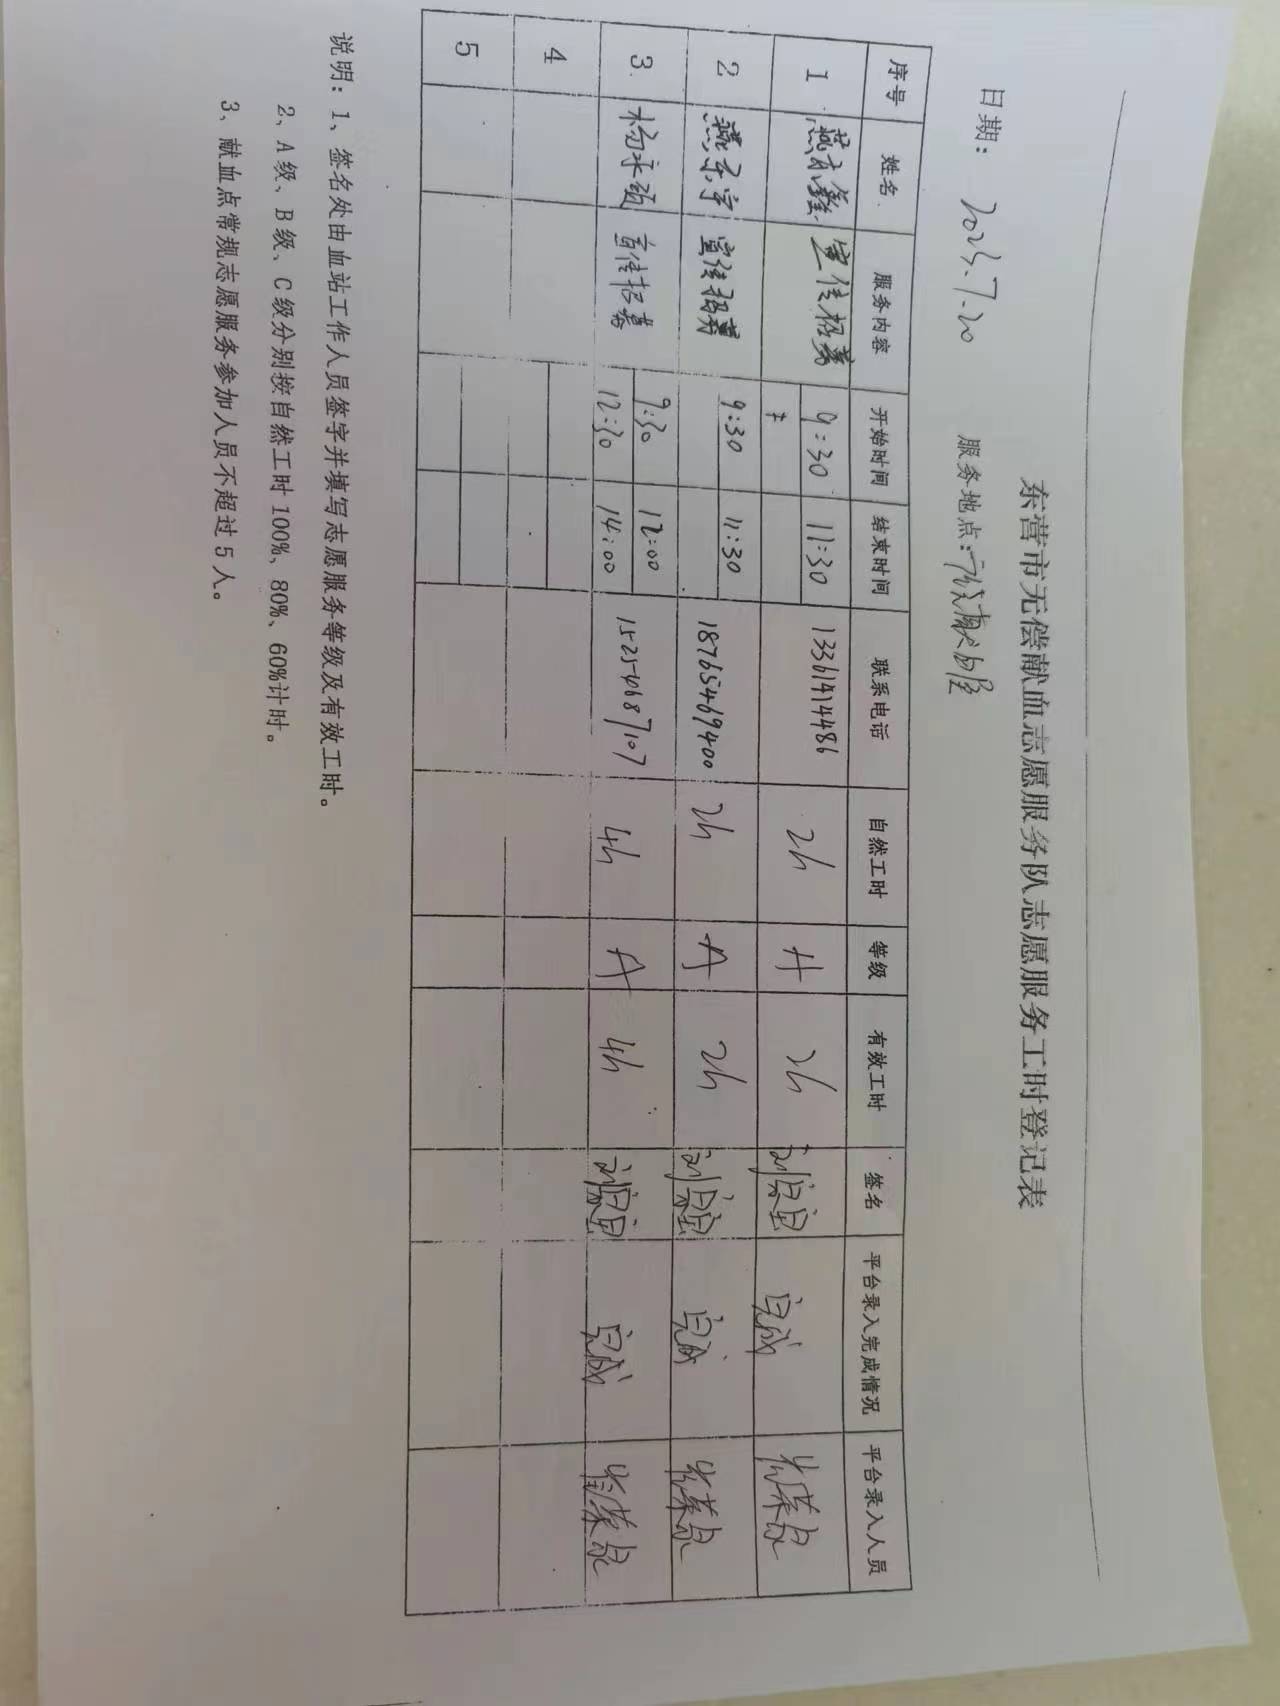 东营市无偿献血志愿服务队志愿服务工时登记表
日期： 服务地点：
序号 姓名 服务内容 开始时间 结束时间 联系电话 自然工时 等级 有效工时 签名 平台录入完成情况 平台录入人员
1 宣传招募 9:30 11:30 13361414486 2h A 2h 完成
2 燕东宇 宣传招募 9:30 11:30 18765469400 2h A 2h 完成
3 杨永頔 宣传招募 9:30 12:00 15254687107 4h A 4h 完成
12:30 14:00
4
5
说明：1、签名处由血站工作人员签字并填写志愿服务等级及有效工时。
2、A级、B级、C级分别按自然工时100%、80%、60%计时。
3、献血点常规志愿服务参加人员不超过5人。